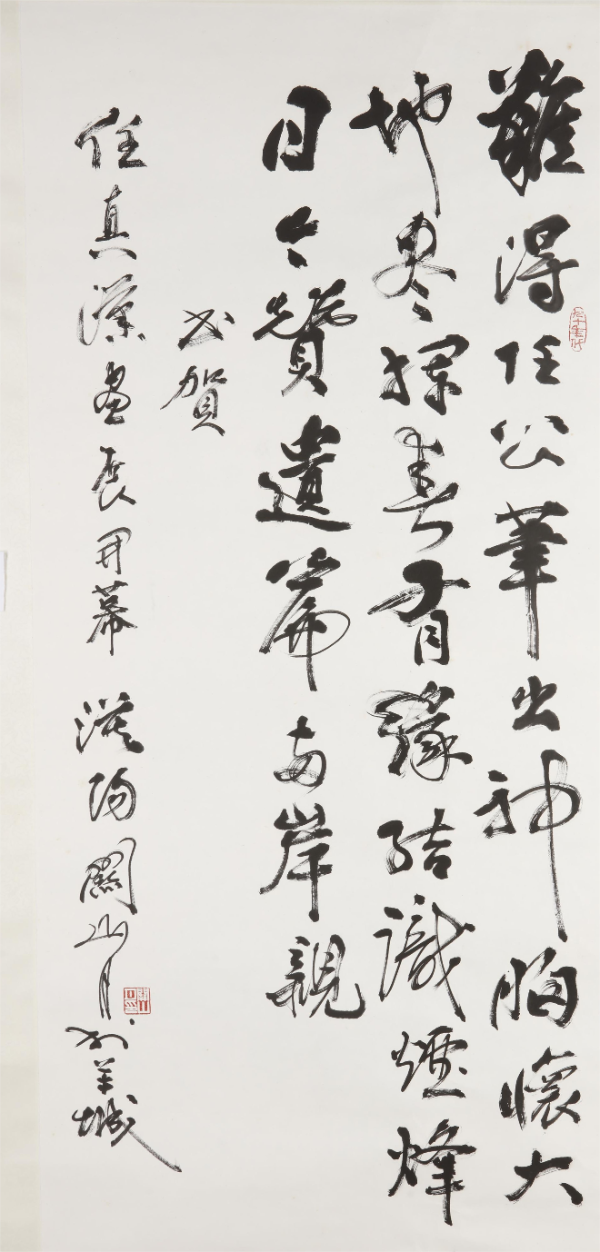 難得任公筆出神胸懷大
地尽探春有緣結識煙烽
日今贊遺篇两岸親
书賀
任真漢畫展開幕 漠陽關山月於羊城